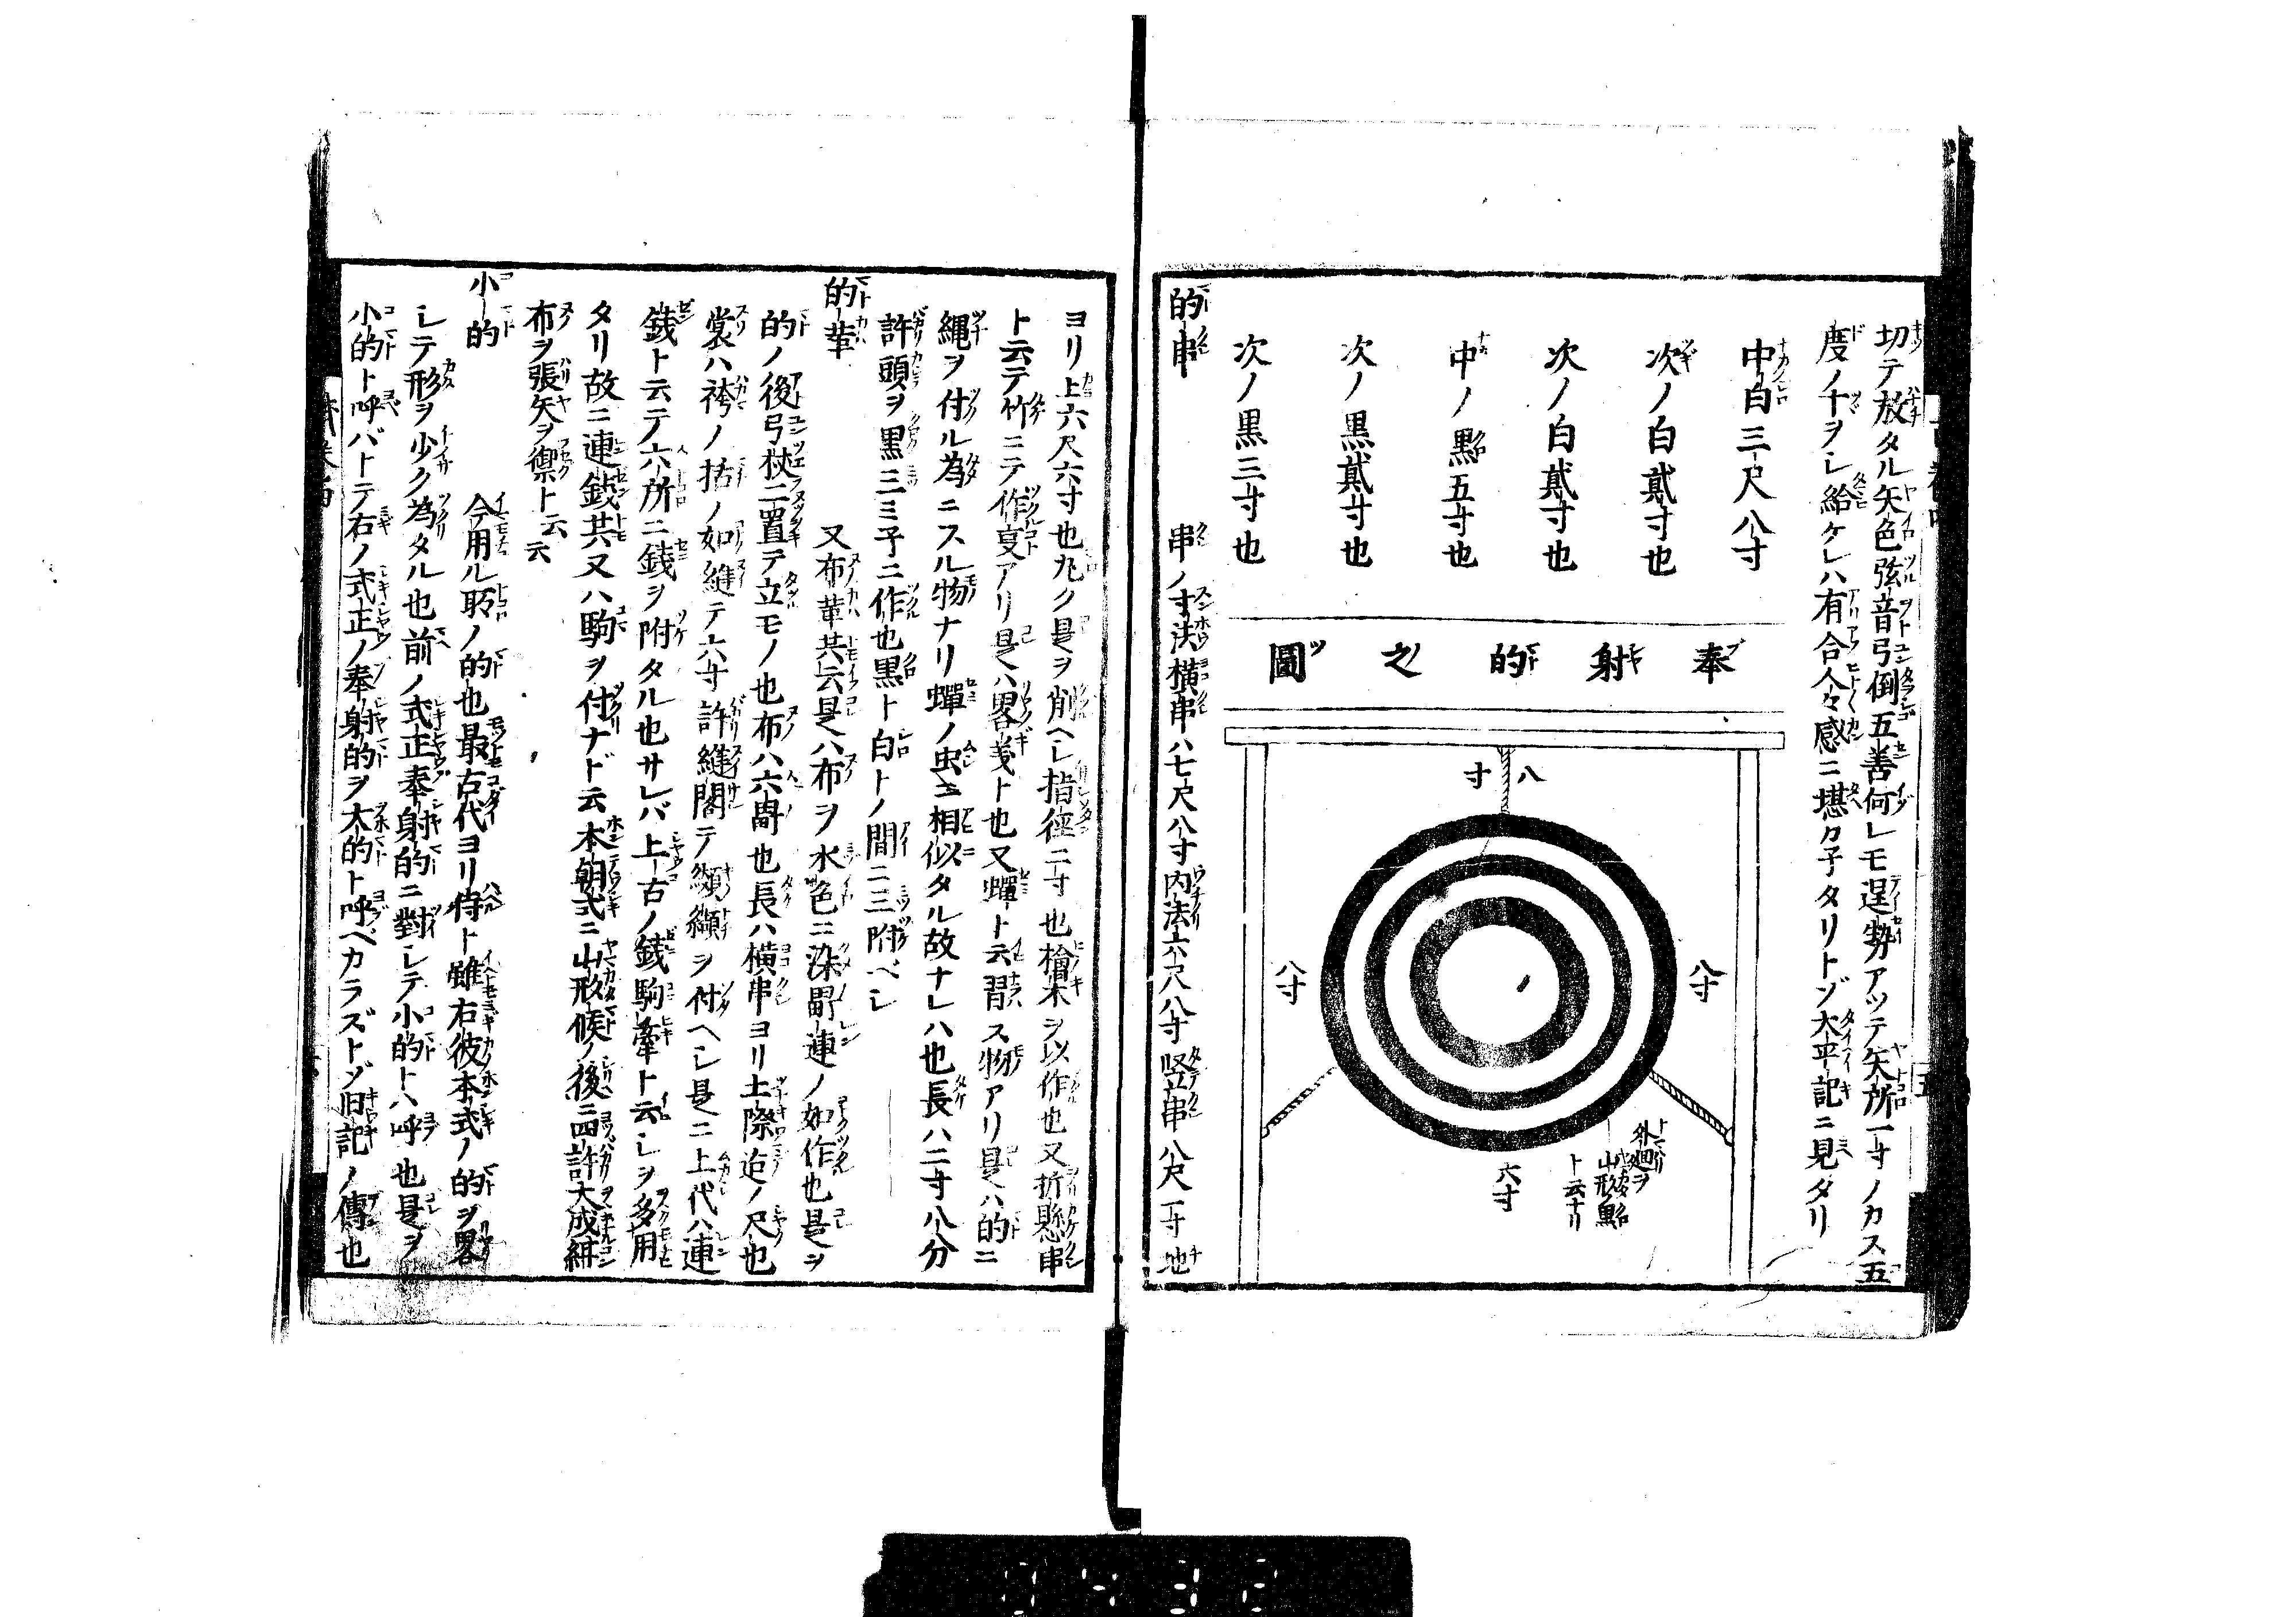 切テ放タル矢色弦音弓倒五善何レモ逞勢アツテ矢所一寸ノカス五
度ノ十ヲシ給ケレハ有合人々感ニ堪カ子タリトゾ太平記ニ見タリ
中白三尺八寸
次ノ白貳寸也
次ノ白貳寸也
中ノ黒五寸也
次ノ黒貳寸也
次ノ黒三寸也
奉射的之圖
八寸
八寸
八寸
六寸
外廻ヲ
山形
ト云ナリ
的串 串ノ寸法横串ハ七尺八寸内法六尺八寸竪串八尺一寸地
ヨリ上六尺六寸也丸ク是ヲ削ヘシ指徑二寸也檜木ヲ以作也又折懸串
ト云テ竹ニテ作叓アリ是ハ畧義ト也又蟬ト云習ス物アリ是ハ的ニ
縄ヲ付ル為ニスル物ナリ蟬ノ虫ニ相似タル故ナレハ也長ハ二寸八分
許頭ヲ黒三ミ子ニ作也黒ト白トノ間ニ三附ベシ
的革 又布革共云是ハ布ヲ水色ニ染畧連ノ如作也是ヲ
的ノ後弓杖二置テ立モノ也布ハ六畐也長ハ横串ヨリ土際迠ノ尺也
裳ハ袴ノ括ノ如縫テ六寸許縫閣テ纐纈ヲ付ヘシ是ニ上代ハ連
銭ト云テ六所ニ銭ヲ附タル也サレバ上古ノ銭駒牽ト云シヲ多用
タリ故ニ連銭共又ハ駒ヲ付ナド云本朝式ニ山形候ノ後ニ四許丈成紺
布ヲ張矢ヲ禦ト云云
小的 今用ル所ノ的也最古代ヨリ侍ト雖右彼本式ノ的ヲ畧
シテ形ヲ少ク為タル也前ノ式正奉射的ニ對シテ小的トハ呼也是ヲ
小的ト呼バトテ右ノ式正ノ奉射的ヲ大的ト呼ヘカラズトゾ旧記ノ傳也